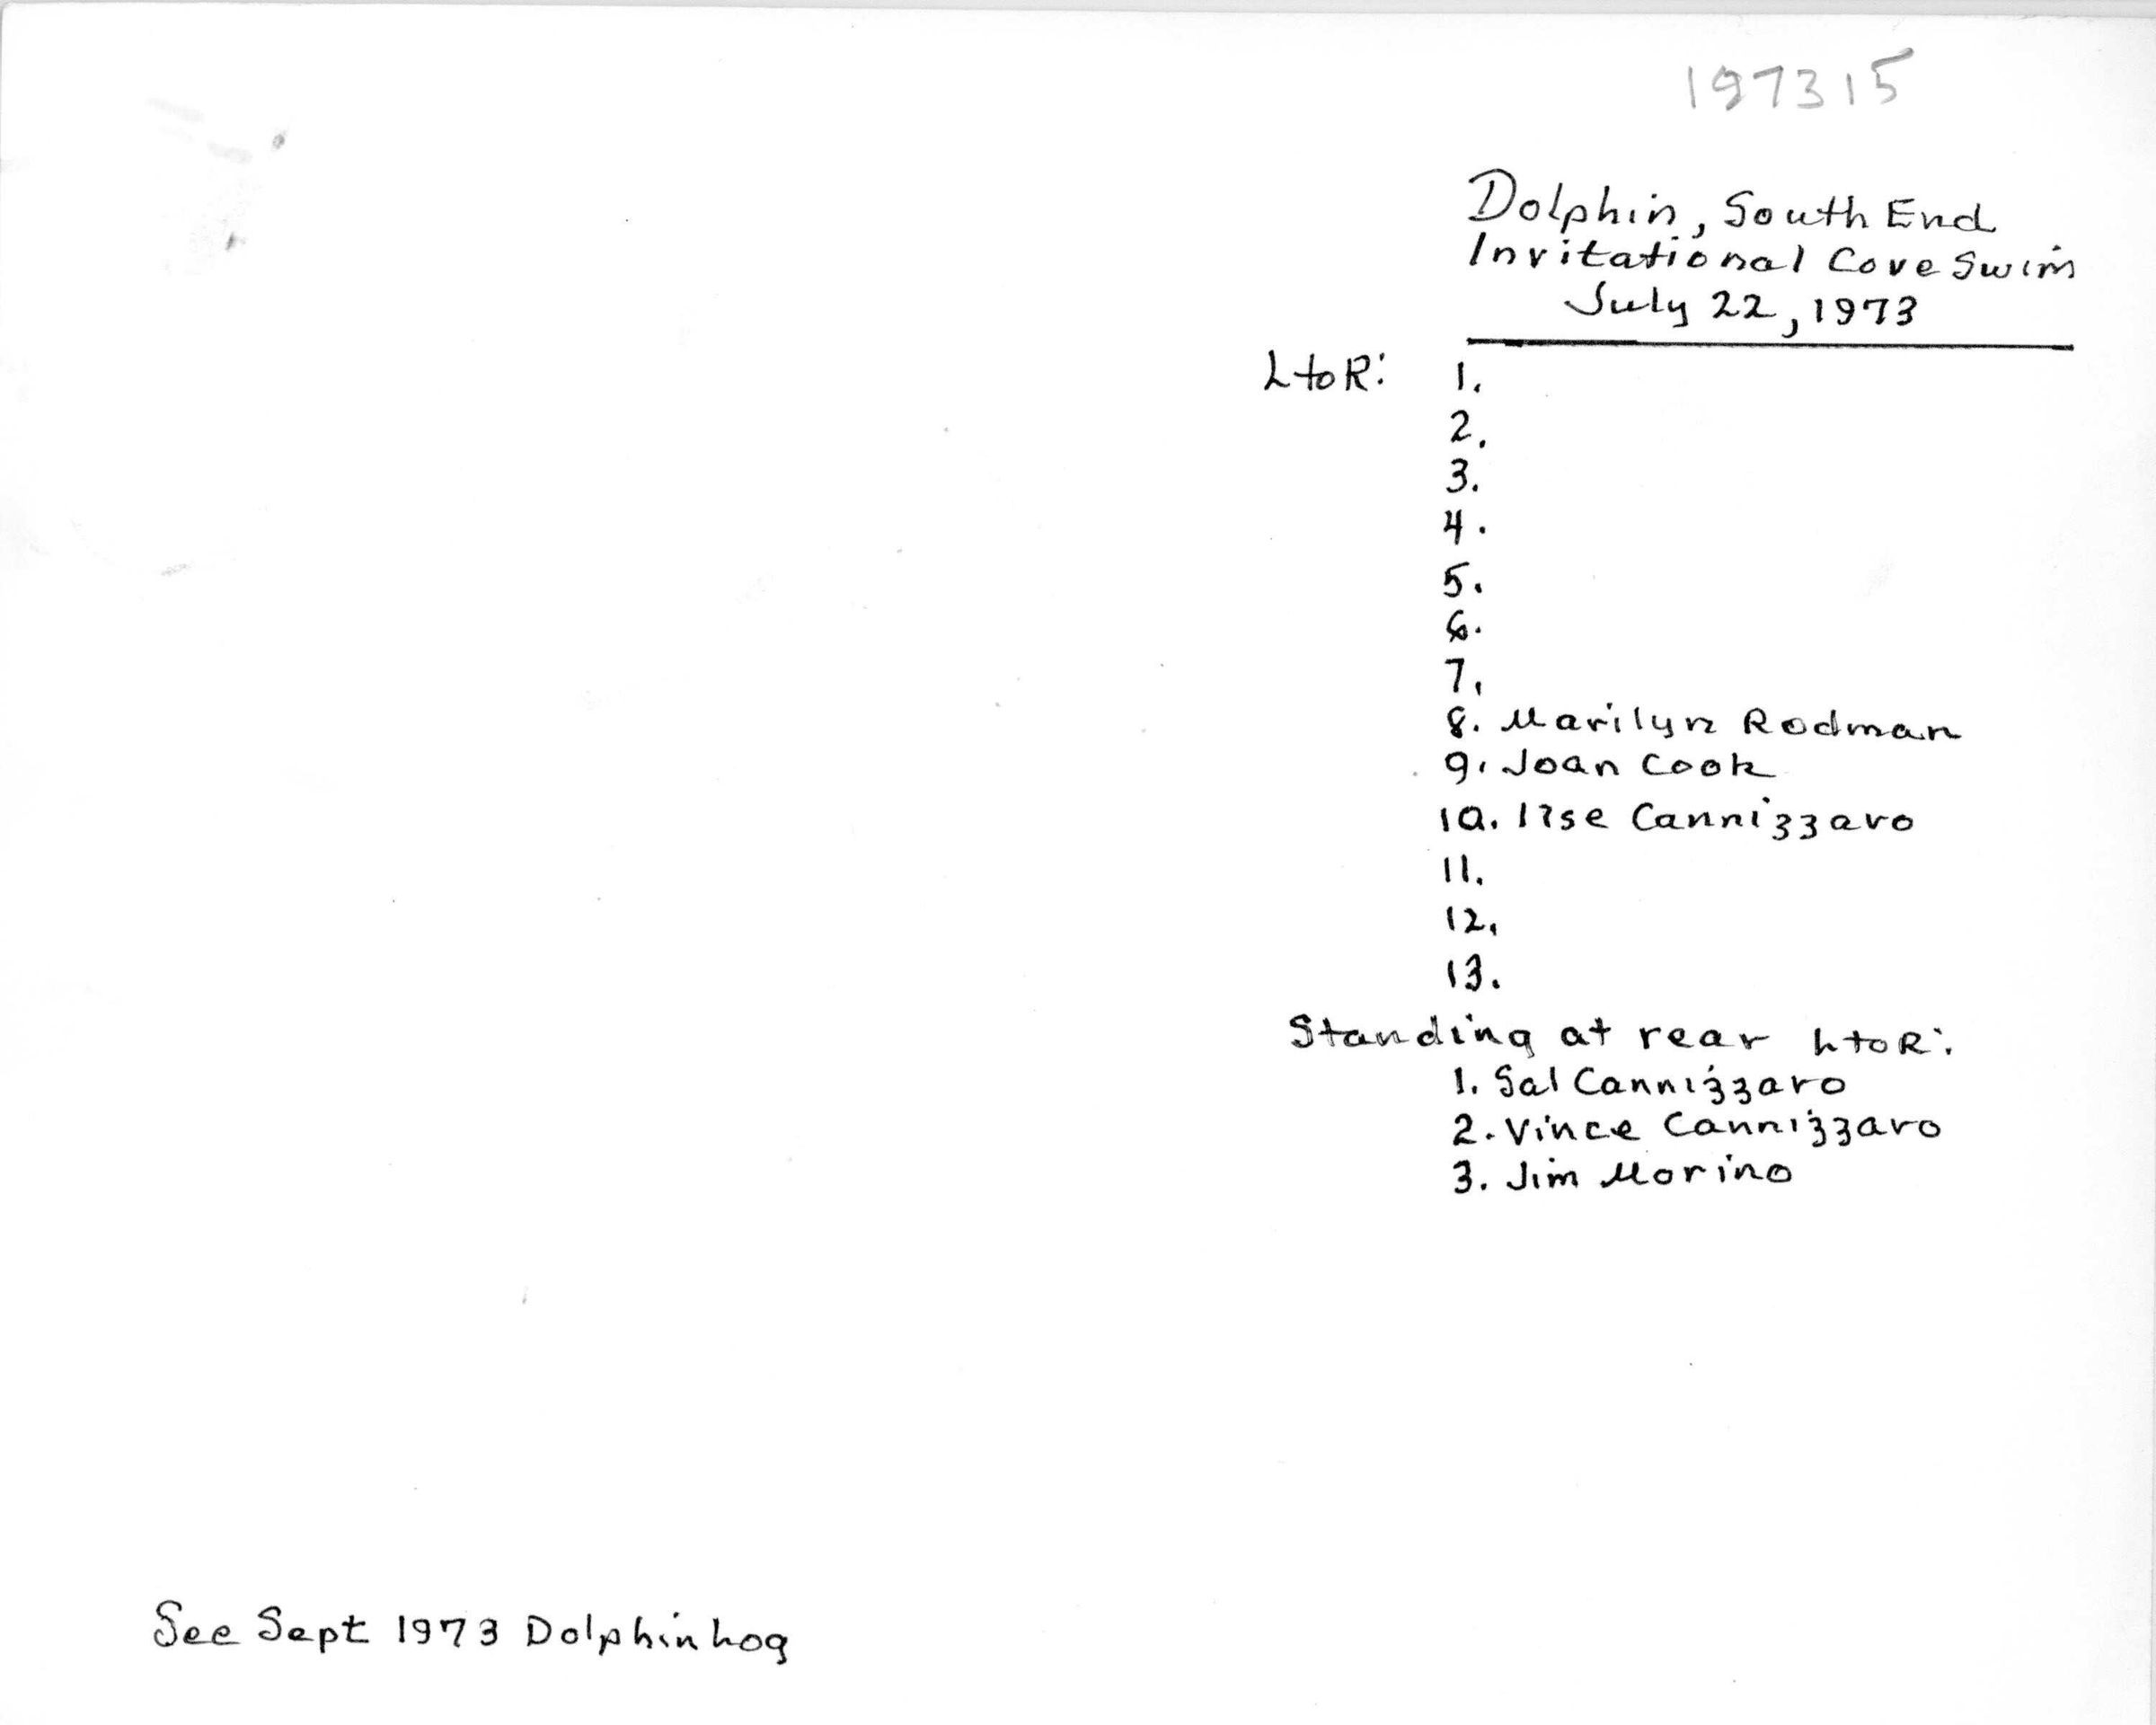 197315
Dolphin, South End
Invitational Cove Swim
July 22, 1973
L to R: 1.
2.
3.
4.
5.
6.
7.
8. Marilyn Rodman
9. Joan Cook
10. Ilse Cannizzaro
11.
12.
13.
Standing at rear L to R:
1. Sal Cannizzaro
2. Vince Cannizzaro
3. Jim Morino
See Sept 1973 Dolphin Log